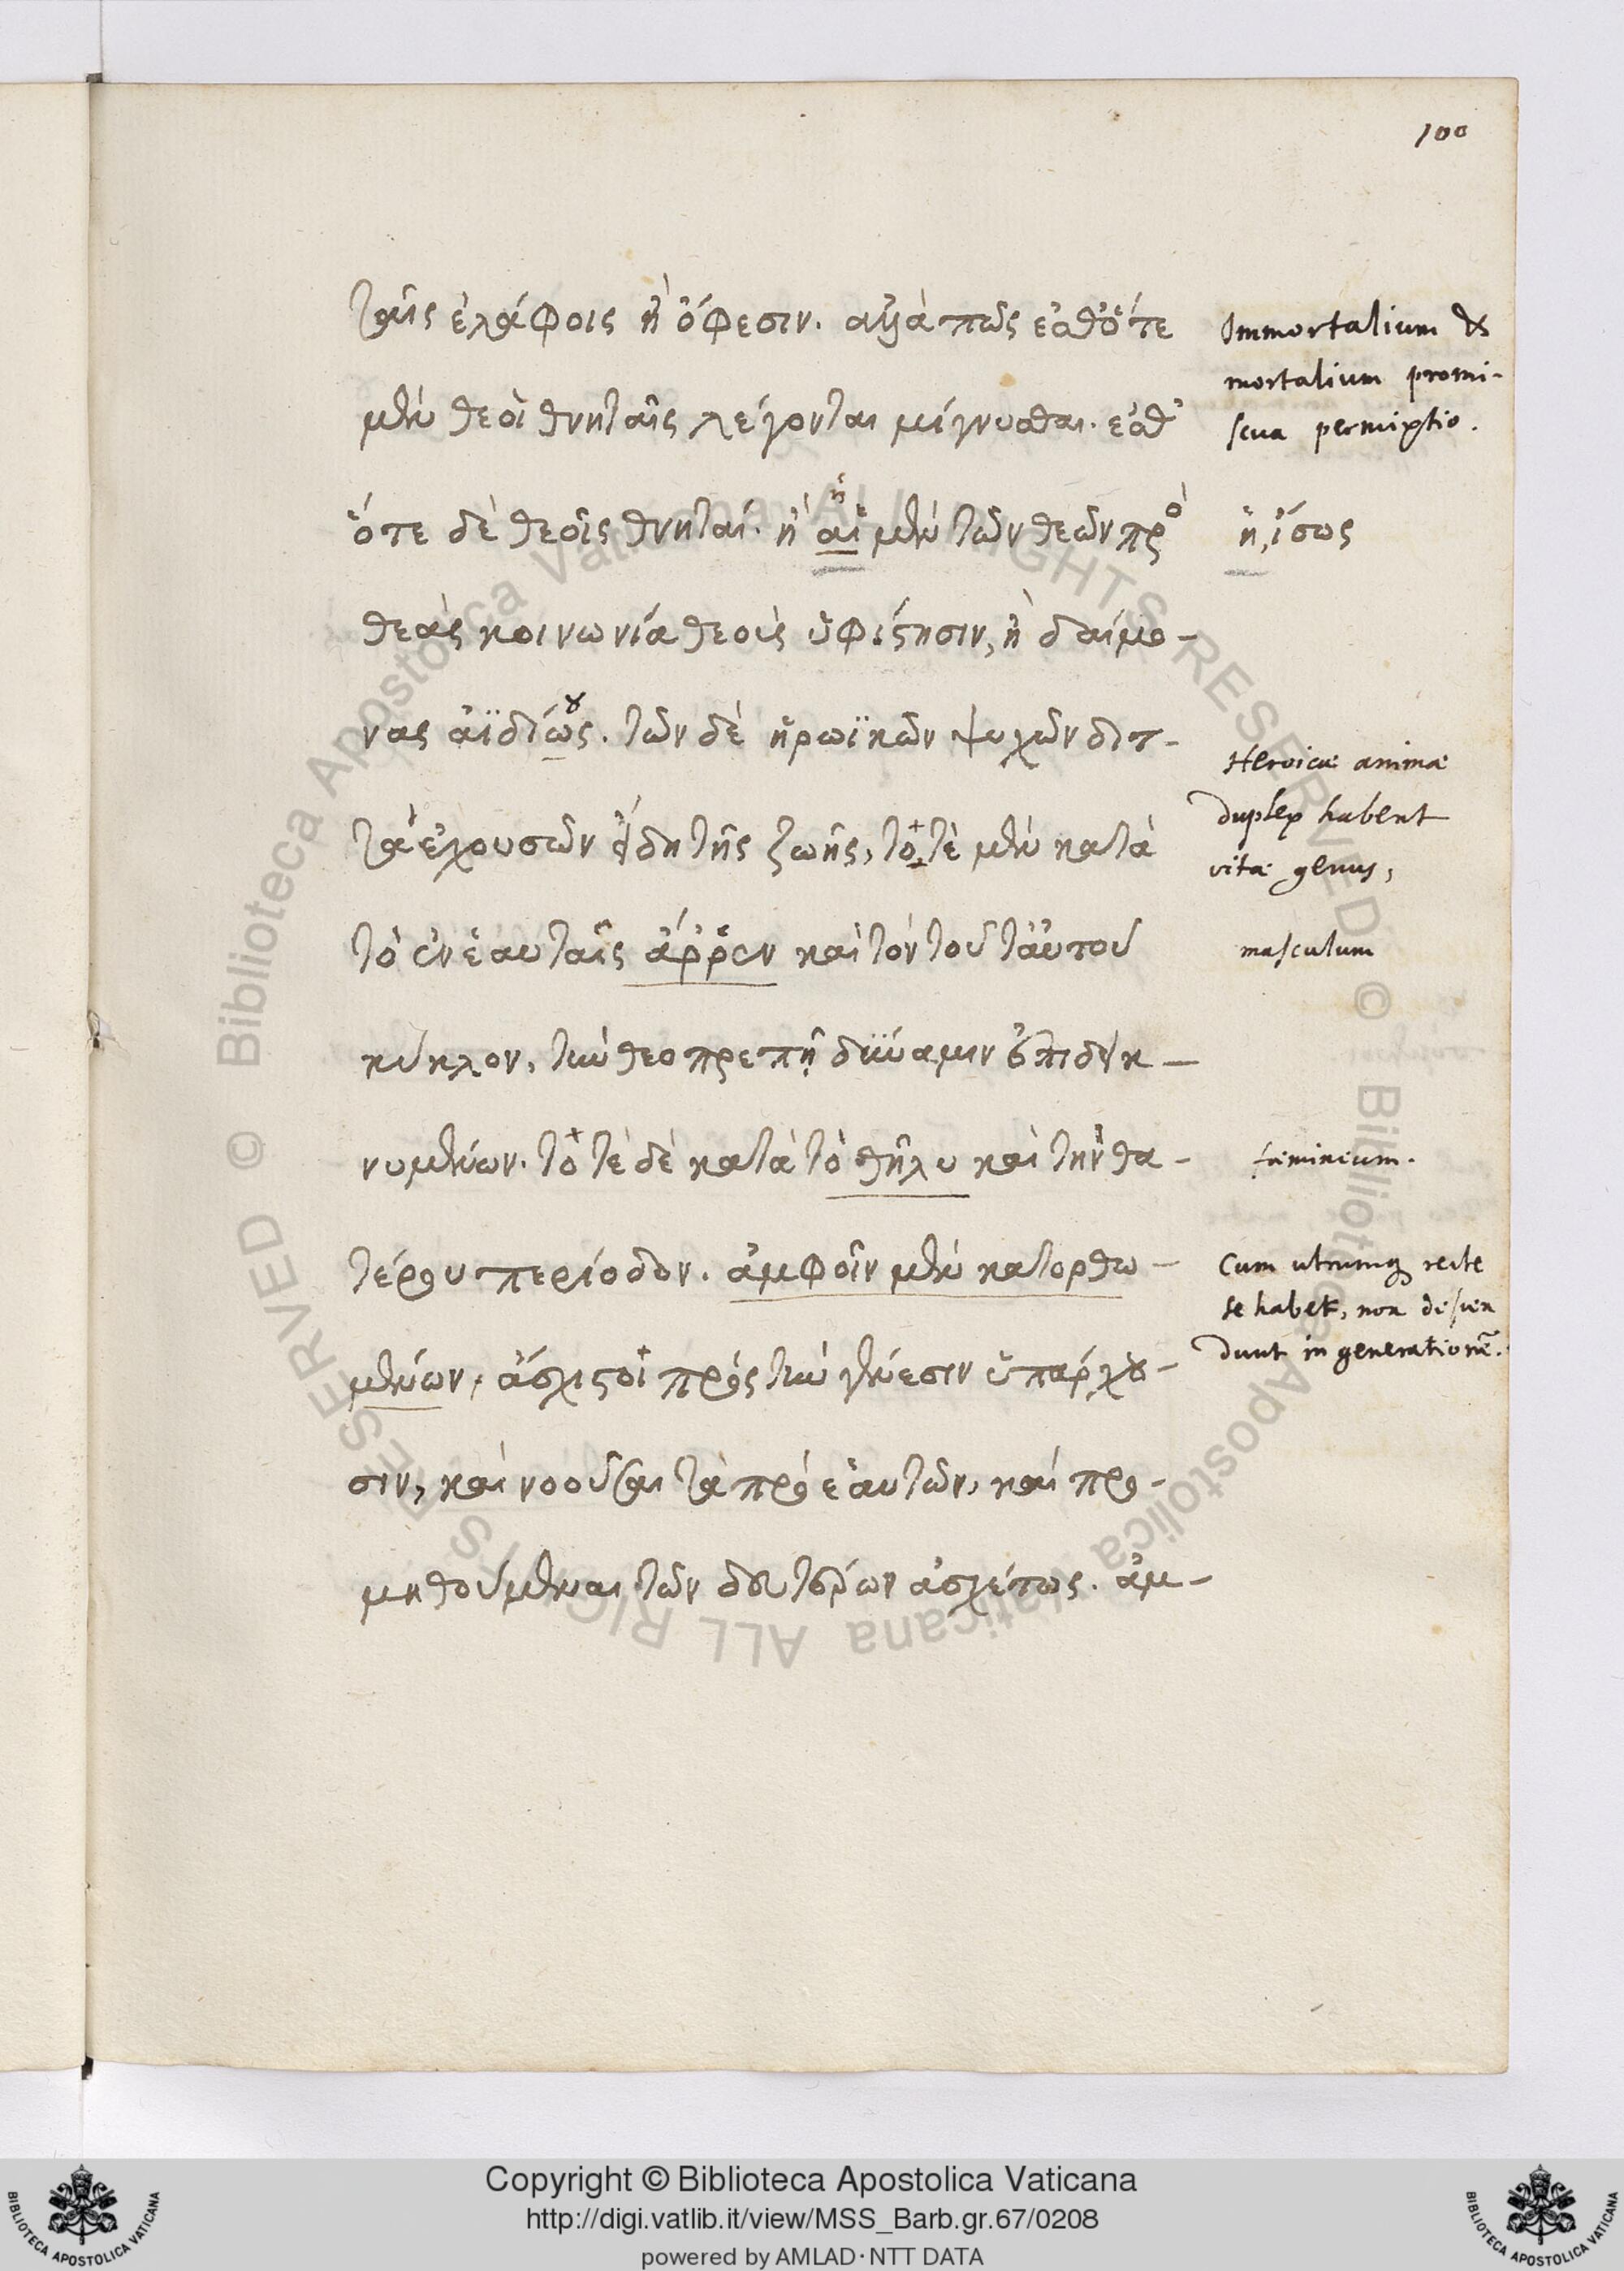 100
ταῖς ἐλάφοις ἢ ὄφεσιν. ἀλλὰ πῶς ἐσθ᾽ ὅτε
μὲν θεοὶ θνηταῖς λέγονται μίγνυσθαι. ἐσθ᾽
ὅτε δὲ θεοῖς θνηταί. ἢ αἱ μὲν τῶν θεῶν πρὸ
θεὰς κοινωνία θεοὺς ὑφίστησιν, ἢ δαίμο-
νας ἀϊδίως. τῶν δὲ ἡρωϊκῶν ψυχῶν διτ-
τὰ ἐχουσῶν εἴδη τῆς ζωῆς, τό τε μὲν κατὰ
τὸ ἐν ἑαυταῖς ἄῤῥεν καὶ τὸν τοῦ ταὐτοῦ
κύκλον, τὴν θεοπρεπῆ δύναμιν ἐπιδεικ-
νυμένων. τό τε δὲ κατὰ τὸ θῆλυ καὶ τὴν θα-
τέρου περίοδον. ἀμφοῖν μὲν κατορθω-
μένων, ἄσχιστοι πρὸς τὴν γένεσιν ὑπάρχου-
σιν, καὶ νοοῦσαι τὰ πρὸ ἑαυτῶν, καὶ προ-
μηθούμεναι τῶν δευτέρων ἀσχέτως. ἀμ-
Immortalium &
mortalium promi-
scua permixtio.
ἡ, ἴσως
Heroicæ animæ
duplex habent
vitæ genus,
masculum
fœmineum.
Cum utrumq; recte
se habet, non descen
dunt in generationē.
Copyright © Biblioteca Apostolica Vaticana
http://digi.vatlib.it/view/MSS_Barb.gr.67/0208
powered by AMLAD·NTT DATA
BIBLIOTECA APOSTOLICA VATICANA
BIBLIOTECA APOSTOLICA VATICANA
© Biblioteca Apostolica Vaticana ALL RIGHTS RESERVED © Biblioteca Apostolica Vaticana ALL RIGHTS RESERVED